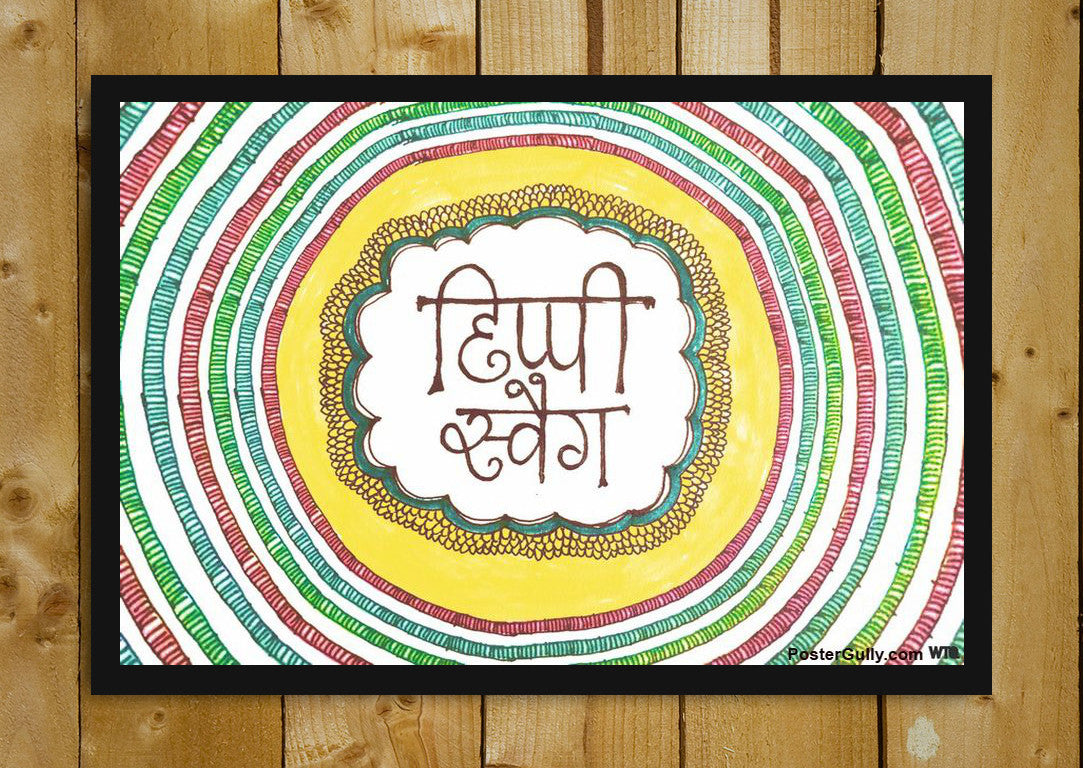 हिप्पी
स्वैग
PosterGully.com WTQ